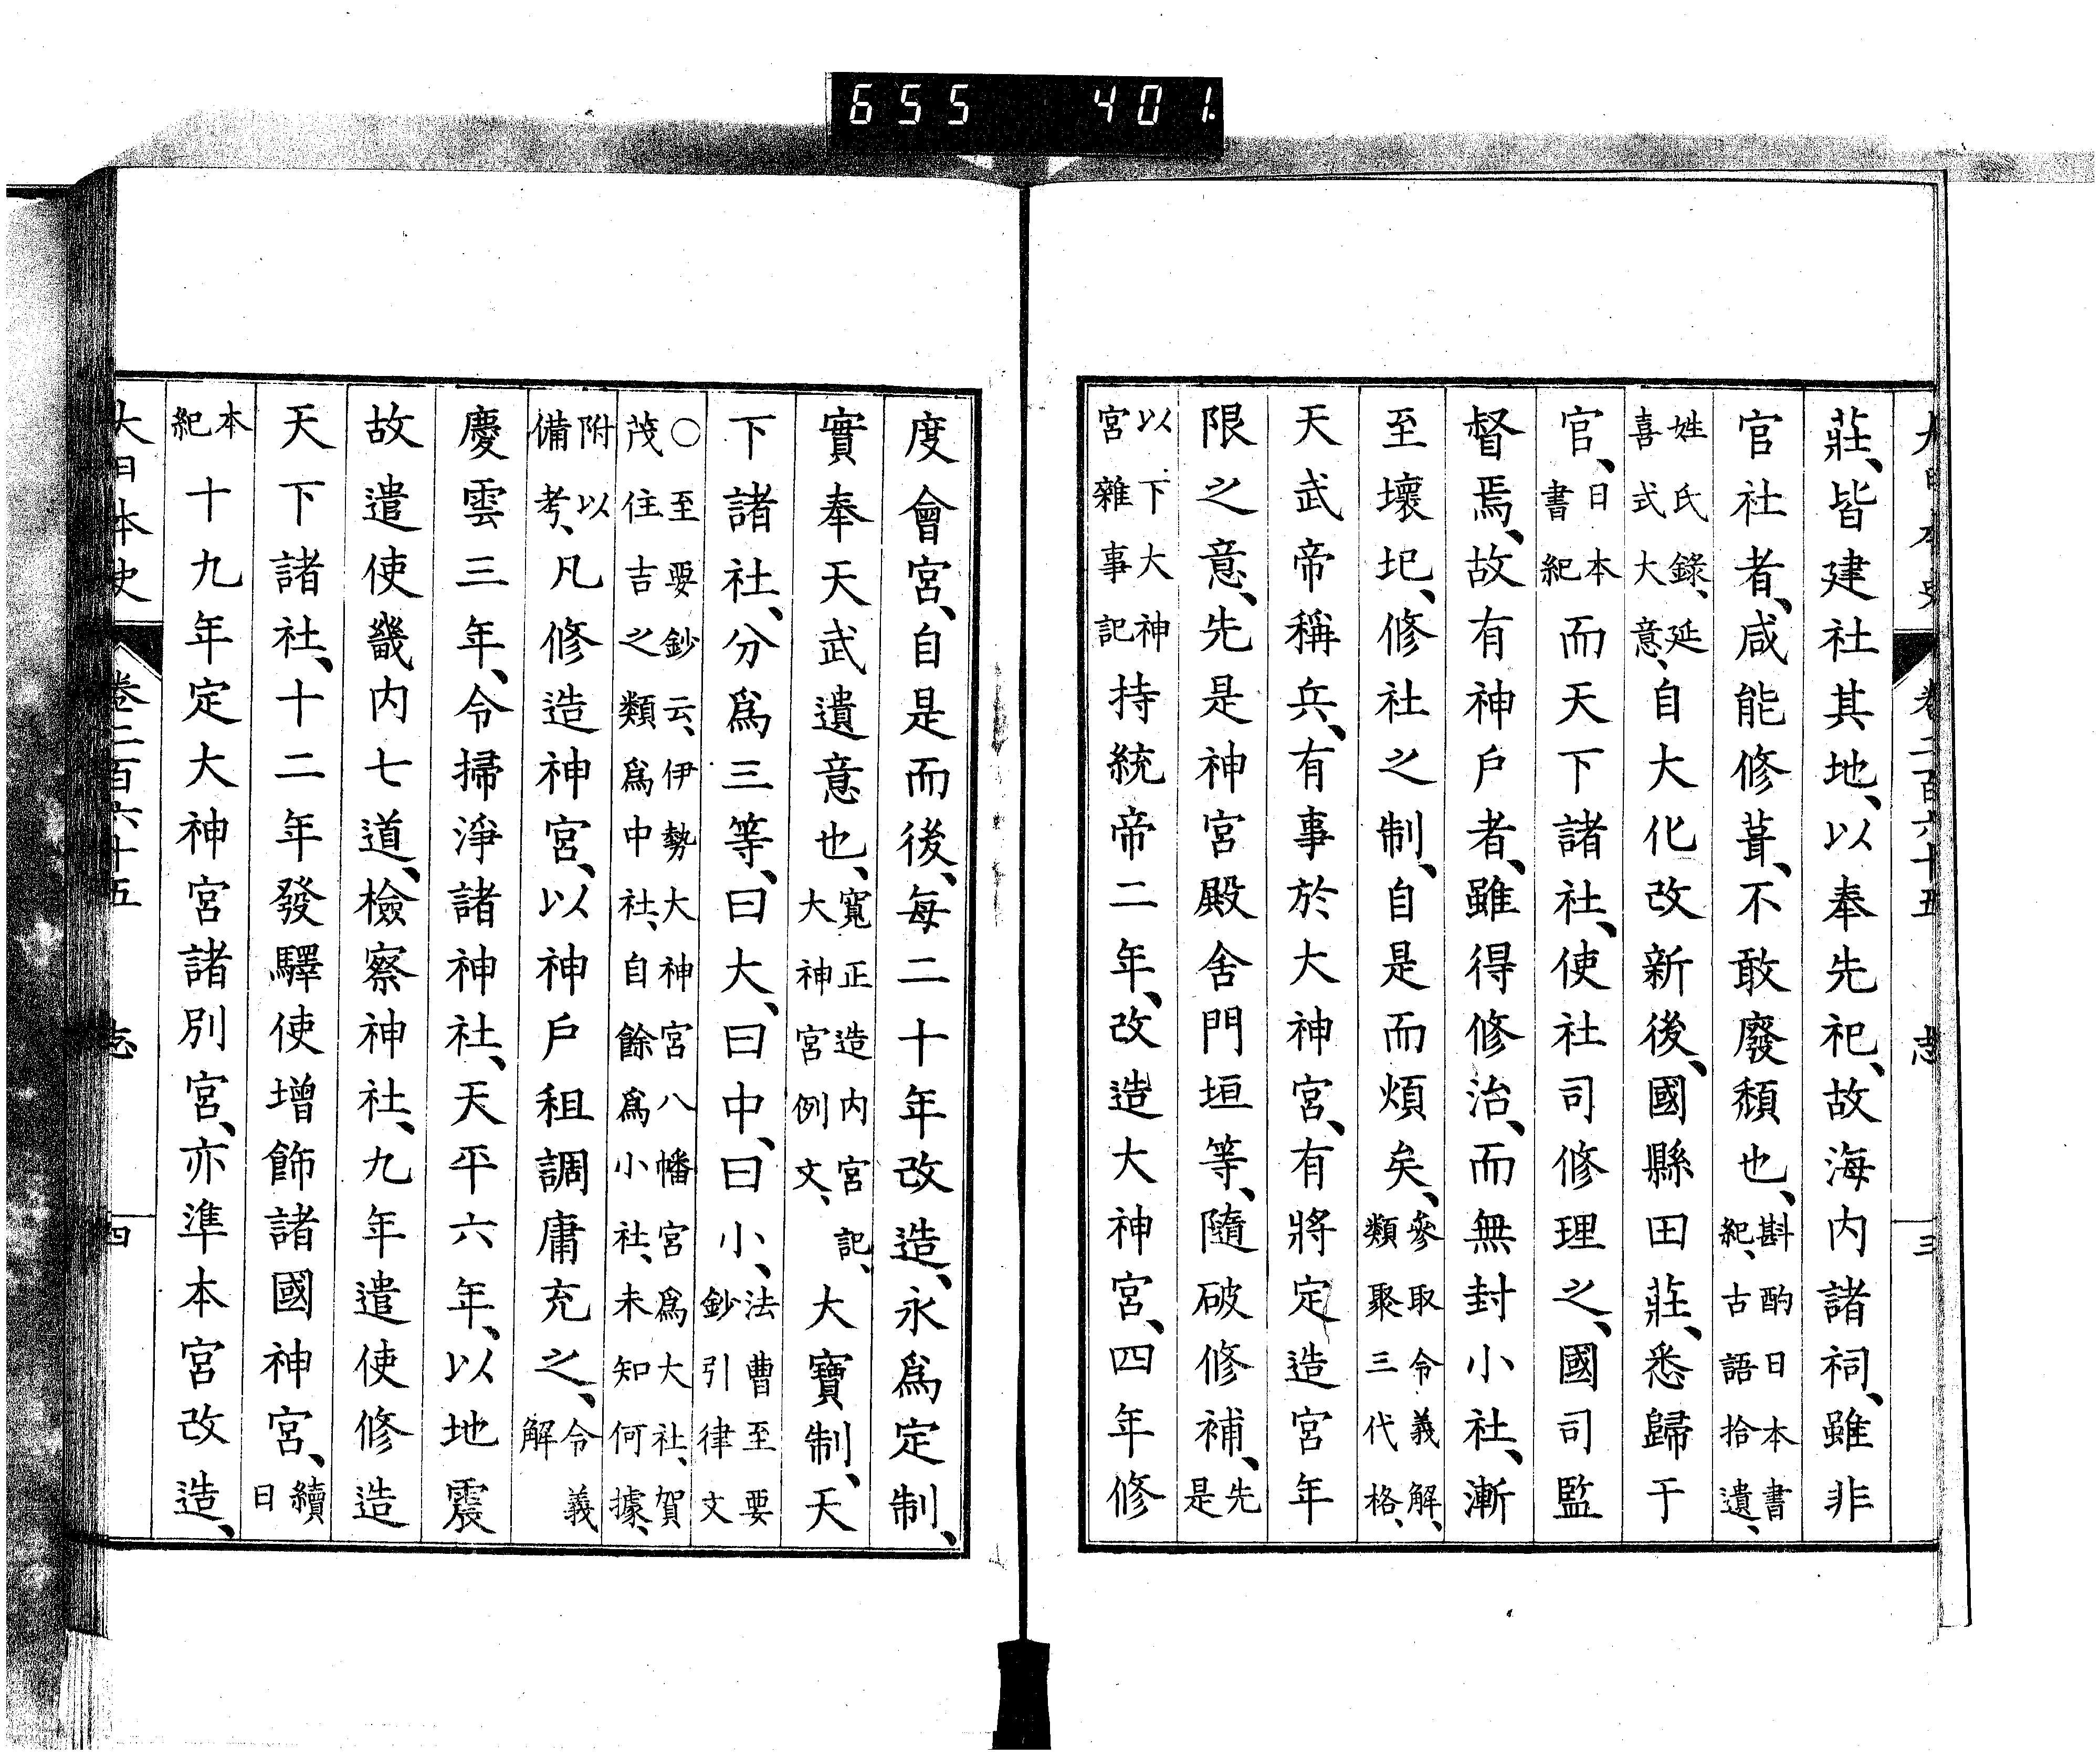 655 401
大日本史 卷二百六十五 志 三
莊、皆建社其地、以奉先祀、故海內諸祠、雖非
官社者、咸能修葺、不敢廢頹也、斟酌日本書紀、古語拾遺、
姓氏錄、延喜式大意、自大化改新後、國縣田莊、悉歸于
官、日本書紀而天下諸社、使社司修理之、國司監
督焉、故有神戶者、雖得修治、而無封小社、漸
至壞圮、修社之制、自是而煩矣、參取令義解、類聚三代格、
天武帝稱兵、有事於大神宮、有將定造宮年
限之意、先是神宮殿舍門垣等、隨破修補、先是
以下大神宮雜事記持統帝二年、改造大神宮、四年修
度會宮、自是而後、每二十年改造、永爲定制、
實奉天武遺意也、寬正造內宮記、大神宮例文、大寶制、天
下諸社、分爲三等、曰大、曰中、曰小、法曹至要鈔引律文
○至要鈔云、伊勢大神宮八幡宮爲大社、賀茂住吉之類爲中社、自餘爲小社、未知何據、
附以備考、凡修造神宮、以神戶租調庸充之、令義解
慶雲三年、令掃淨諸神社、天平六年、以地震
故遣使畿內七道、檢察神社、九年遣使修造
天下諸社、十二年發驛使增飾諸國神宮、續日
本紀十九年定大神宮諸別宮、亦準本宮改造、
大日本史 卷二百六十五 志 四